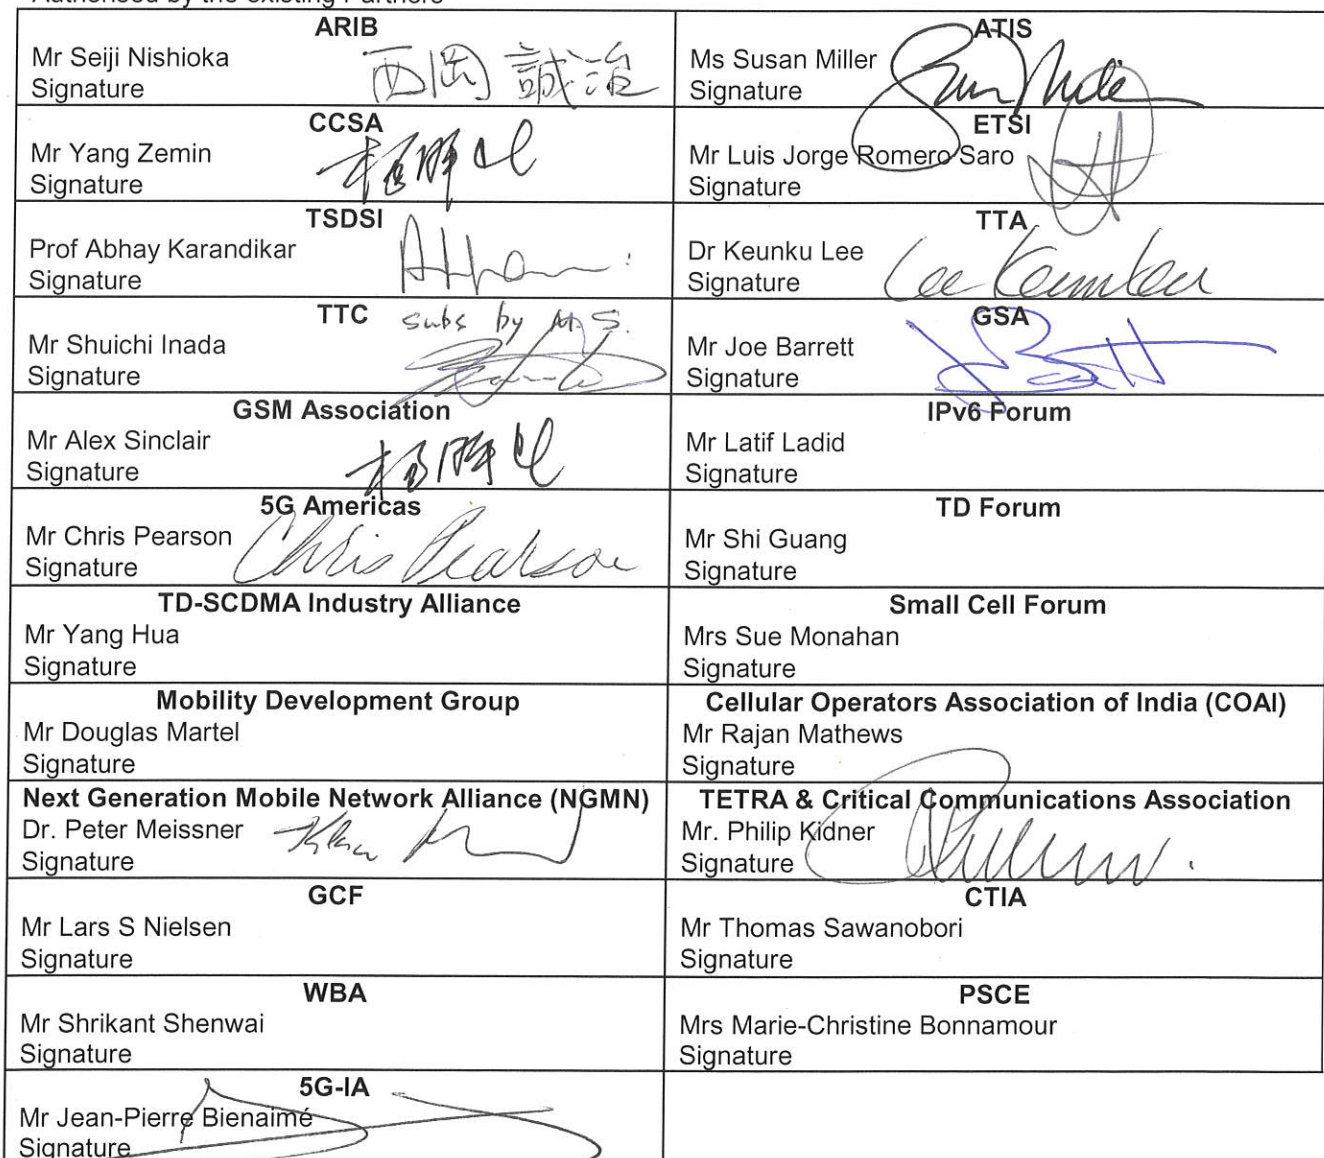 Authorised by the existing Partners
ARIB
Mr Seiji Nishioka
Signature
西岡 誠治
ATIS
Ms Susan Miller
Signature
CCSA
Mr Yang Zemin
Signature
ETSI
Mr Luis Jorge Romero Saro
Signature
TSDSI
Prof Abhay Karandikar
Signature
TTA
Dr Keunku Lee
Signature
Lee Keunku
TTC
subs by M.S.
Mr Shuichi Inada
Signature
GSA
Mr Joe Barrett
Signature
GSM Association
Mr Alex Sinclair
Signature
IPv6 Forum
Mr Latif Ladid
Signature
5G Americas
Mr Chris Pearson
Signature
Chris Pearson
TD Forum
Mr Shi Guang
Signature
TD-SCDMA Industry Alliance
Mr Yang Hua
Signature
Small Cell Forum
Mrs Sue Monahan
Signature
Mobility Development Group
Mr Douglas Martel
Signature
Cellular Operators Association of India (COAI)
Mr Rajan Mathews
Signature
Next Generation Mobile Network Alliance (NGMN)
Dr. Peter Meissner
Signature
TETRA & Critical Communications Association
Mr. Philip Kidner
Signature
GCF
Mr Lars S Nielsen
Signature
CTIA
Mr Thomas Sawanobori
Signature
WBA
Mr Shrikant Shenwai
Signature
PSCE
Mrs Marie-Christine Bonnamour
Signature
5G-IA
Mr Jean-Pierre Bienaimé
Signature